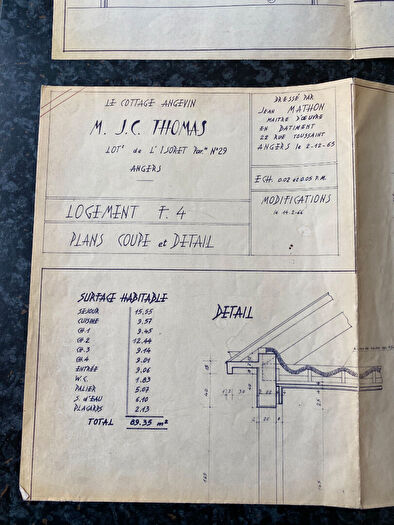 LE COTTAGE ANGEVIN
M. J.C. THOMAS
LOTt de L'IJORET Par.lle N°29
ANGERS
DRESSÉ PAR
JEAN MATHON
MAITRE D'ŒUVRE
EN BATIMENT
22 RUE TOUSSAINT
ANGERS le 2-12-65
ECH. 0.02 et 0.05 P.M.
MODIFICATIONS
le 14-2-66
LOGEMENT F. 4
PLANS COUPE et DETAIL
SURFACE HABITABLE
SEJOUR 15,55
CUISINE 9.57
CH.1 9.45
CH.2 12.44
CH.3 9.14
CH.4 9.01
ENTRÉE 9.06
W.C. 1.83
PALIER 5.07
S. d'EAU 6.10
PLACARDS 2.13
TOTAL 89.35 m²
DETAIL